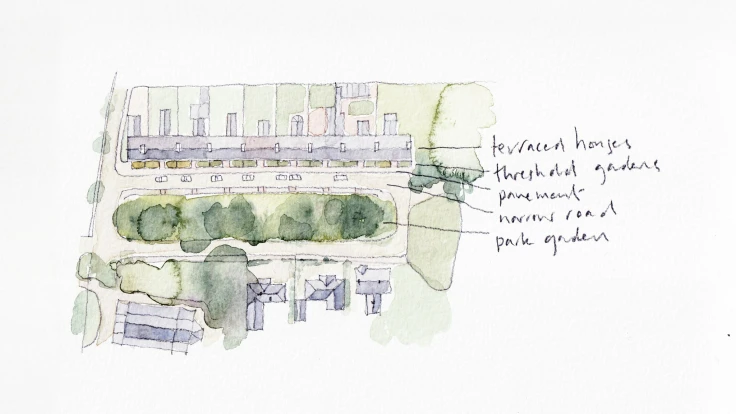 terraced houses
threshold gardens
pavement
narrow road
park garden